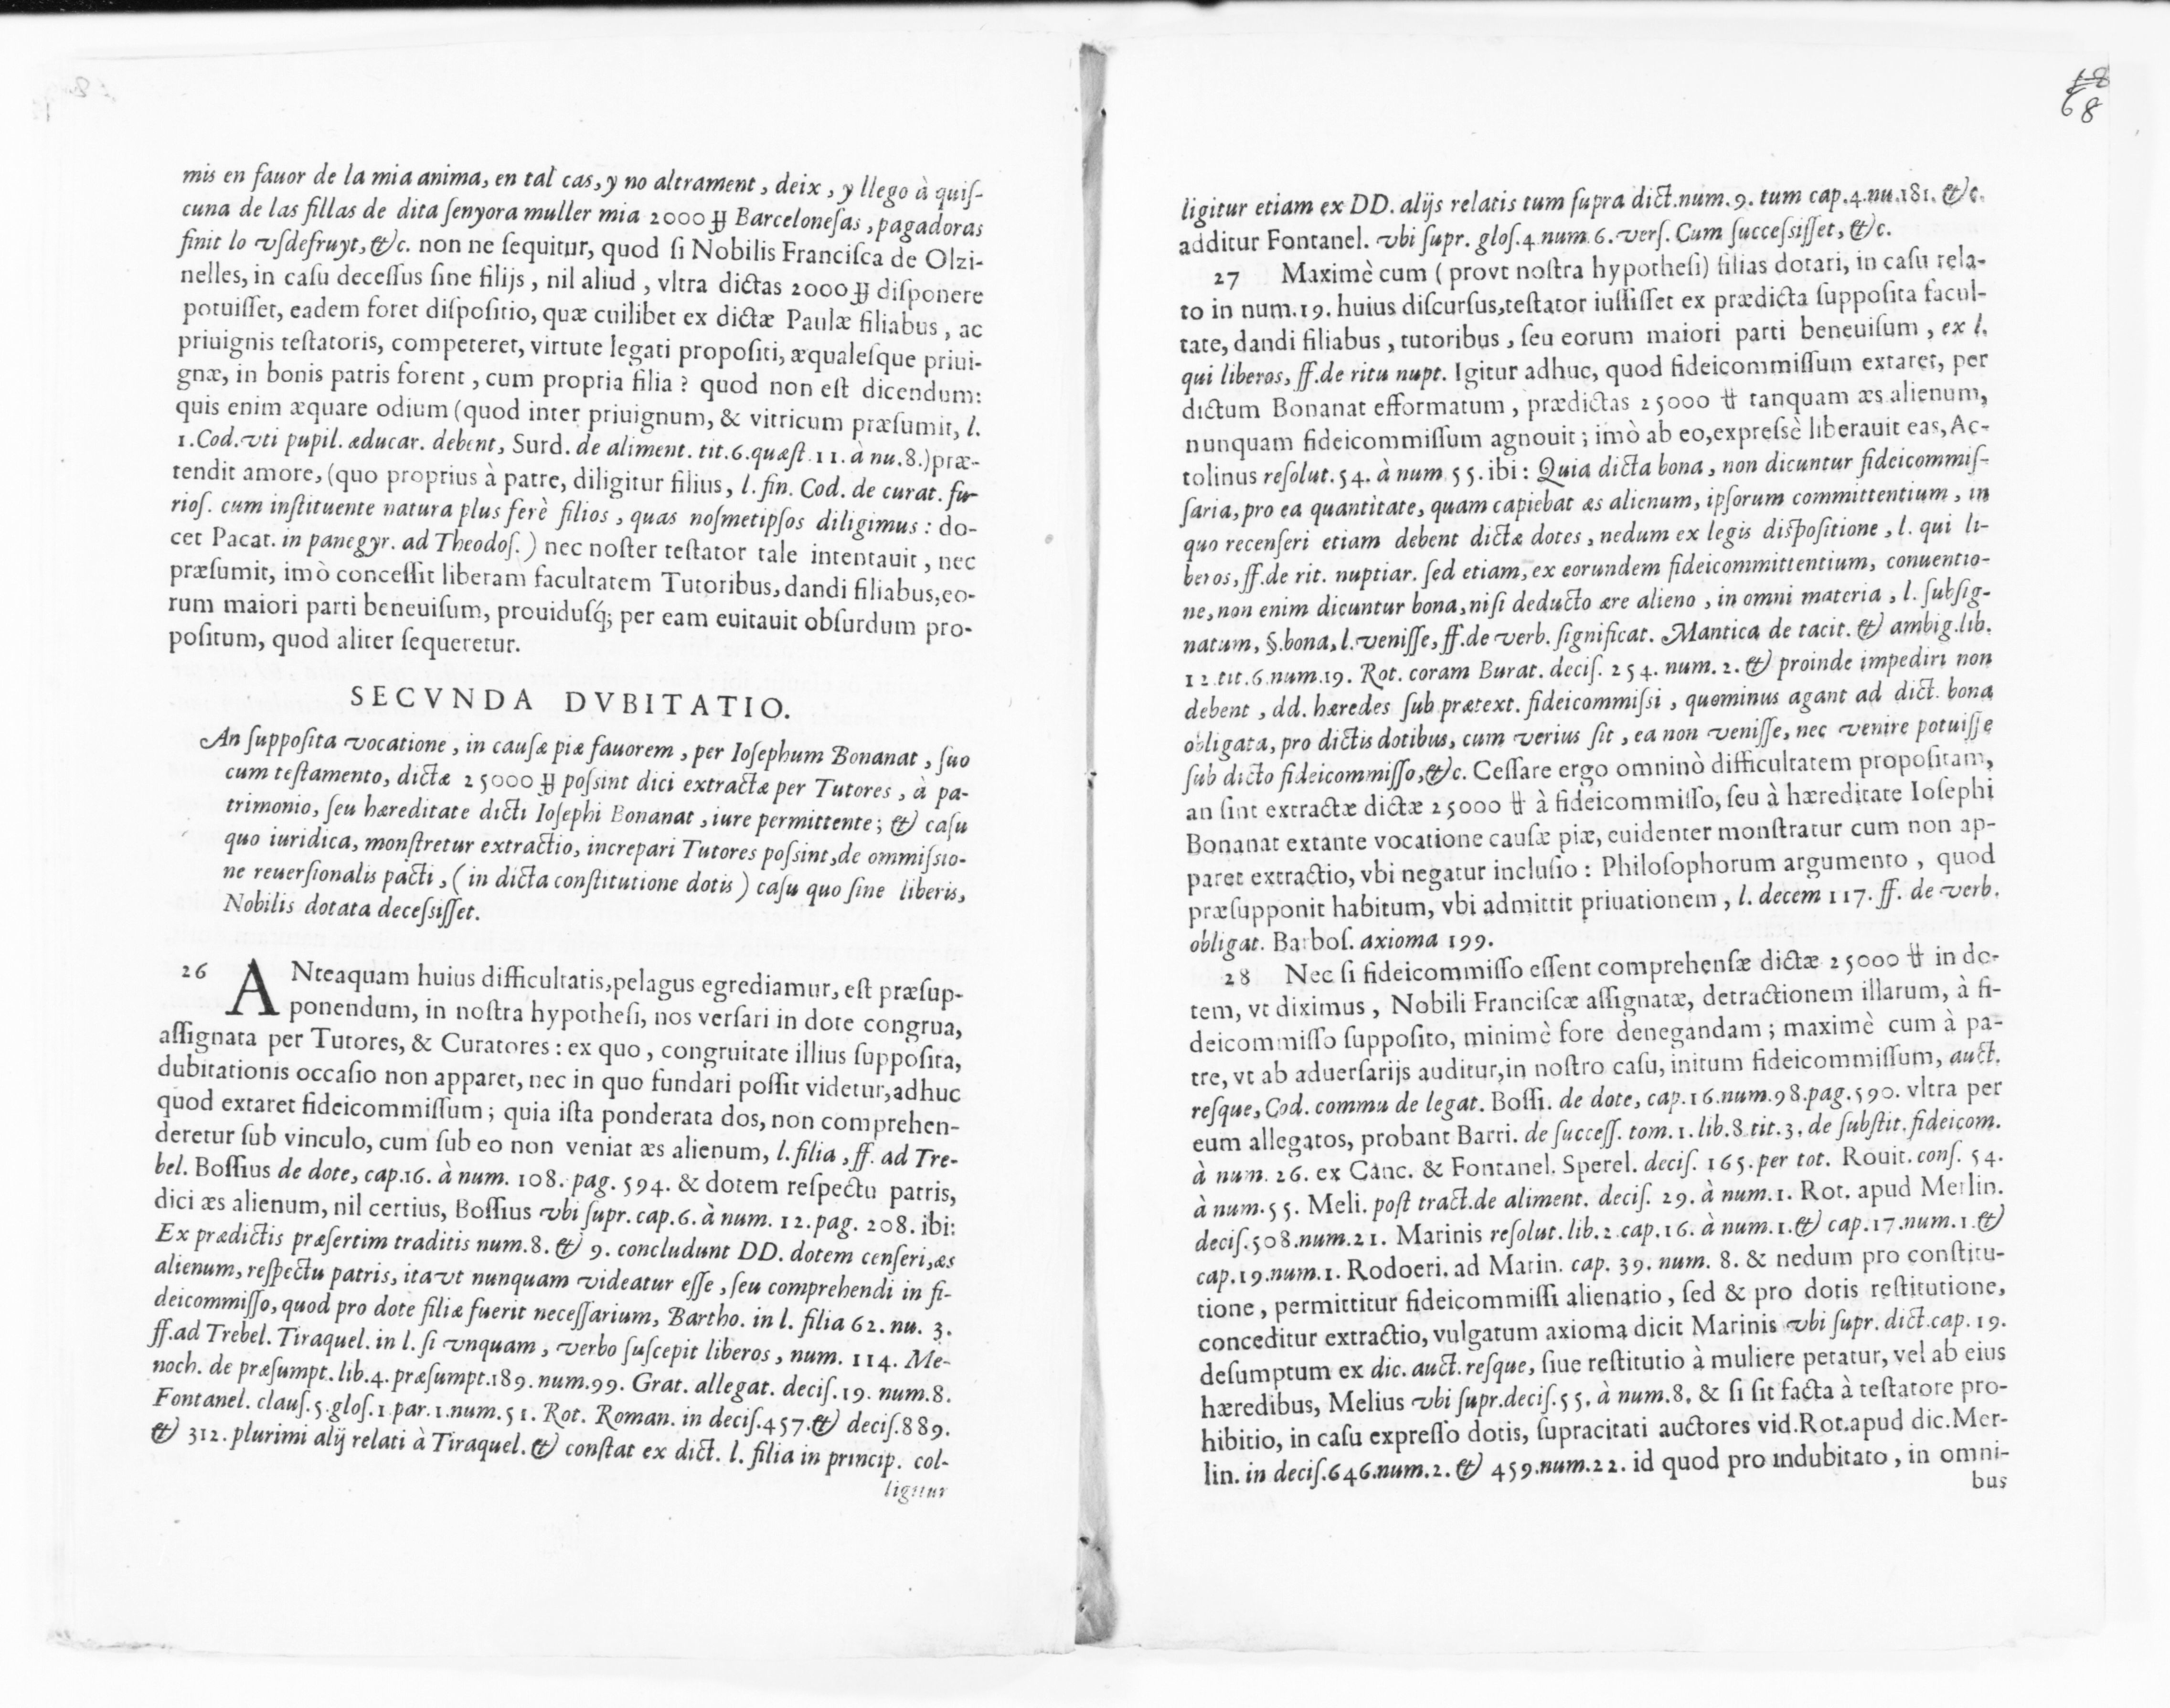 mis en fauor de la mia anima, en tal cas, y no altrament, deix, y llego à quiſ-
cuna de las fillas de dita ſenyora muller mia 2000 ℔ Barceloneſas, pagadoras
finit lo vſdefruyt, &c. non ne ſequitur, quod ſi Nobilis Franciſca de Olzi-
nelles, in caſu deceſſus ſine filijs, nil aliud, vltra dictas 2000 ℔ diſponere
potuiſſet, eadem foret diſpoſitio, quæ cuilibet ex dictæ Paulæ filiabus, ac
priuignis teſtatoris, competeret, virtute legati propoſiti, æqualeſque priui-
gnæ, in bonis patris forent, cum propria filia? quod non eſt dicendum:
quis enim æquare odium (quod inter priuignum, & vitricum præſumit, l.
1. Cod. vti pupil. æducar. debent, Surd. de aliment. tit. 6. quæſt. 11. à nu. 8.) præ-
tendit amore, (quo proprius à patre, diligitur filius, l. fin. Cod. de curat. fu-
rioſ. cum inſtituente natura plus ferè filios, quas noſmetipſos diligimus: do-
cet Pacat. in panegyr. ad Theodoſ.) nec noſter teſtator tale intentauit, nec
præſumit, imò conceſſit liberam facultatem Tutoribus, dandi filiabus, eo-
rum maiori parti beneuiſum, prouiduſq́; per eam euitauit obſurdum pro-
poſitum, quod aliter ſequeretur.
SECVNDA DVBITATIO.
An ſuppoſita vocatione, in cauſæ piæ fauorem, per Ioſephum Bonanat, ſuo
cum teſtamento, dictæ 25000 ℔ poſsint dici extractæ per Tutores, à pa-
trimonio, ſeu hæreditate dicti Ioſephi Bonanat, iure permittente; & caſu
quo iuridica, monſtretur extractio, increpari Tutores poſsint, de ommiſsio-
ne reuerſionalis pacti, (in dicta conſtitutione dotis) caſu quo ſine liberis,
Nobilis dotata deceſsiſſet.
26 ANteaquam huius difficultatis, pelagus egrediamur, eſt præſup-
ponendum, in noſtra hypotheſi, nos verſari in dote congrua,
aſſignata per Tutores, & Curatores: ex quo, congruitate illius ſuppoſita,
dubitationis occaſio non apparet, nec in quo fundari poſſit videtur, adhuc
quod extaret fideicommiſſum; quia iſta ponderata dos, non comprehen-
deretur ſub vinculo, cum ſub eo non veniat æs alienum, l. filia, ff. ad Tre-
bel. Boſſius de dote, cap. 16. à num. 108. pag. 594. & dotem reſpectu patris,
dici æs alienum, nil certius, Boſſius vbi ſupr. cap. 6. à num. 12. pag. 208. ibi:
Ex prædictis præſertim traditis num. 8. & 9. concludunt DD. dotem cenſeri, æs
alienum, reſpectu patris, ita vt nunquam videatur eſſe, ſeu comprehendi in fi-
deicommiſſo, quod pro dote filiæ fuerit neceſſarium, Bartho. in l. filia 62. nu. 3.
ff. ad Trebel. Tiraquel. in l. ſi vnquam, verbo ſuſcepit liberos, num. 114. Me-
noch. de præſumpt. lib. 4. præſumpt. 189. num. 99. Grat. allegat. deciſ. 19. num. 8.
Fontanel. clauſ. 5. gloſ. 1. par. 1. num. 51. Rot. Roman. in deciſ. 457. & deciſ. 889.
& 312. plurimi alij relati à Tiraquel. & conſtat ex dict. l. filia in princip. col-
ligitur
68
ligitur etiam ex DD. alijs relatis tum ſupra dict. num. 9. tum cap. 4. nu. 181. &c.
additur Fontanel. vbi ſupr. gloſ. 4. num. 6. verſ. Cum ſucceſsiſſet, &c.
27 Maximè cum (provt noſtra hypotheſi) filias dotari, in caſu rela-
to in num. 19. huius diſcurſus, teſtator iuſſiſſet ex prædicta ſuppoſita facul-
tate, dandi filiabus, tutoribus, ſeu eorum maiori parti beneuiſum, ex l.
qui liberos, ff. de ritu nupt. Igitur adhuc, quod fideicommiſſum extaret, per
dictum Bonanat efformatum, prædictas 25000 ℔ tanquam æs alienum,
nunquam fideicommiſſum agnouit; imò ab eo, expreſsè liberauit eas, Ac-
tolinus reſolut. 54. à num. 55. ibi: Quia dicta bona, non dicuntur fideicommiſ-
ſaria, pro ea quantitate, quam capiebat æs alienum, ipſorum committentium, in
quo recenſeri etiam debent dictæ dotes, nedum ex legis diſpoſitione, l. qui li-
beros, ff. de rit. nuptiar. ſed etiam, ex eorundem fideicommittentium, conuentio-
ne, non enim dicuntur bona, niſi deducto ære alieno, in omni materia, l. ſubſig-
natum, §. bona, l. veniſſe, ff. de verb. ſignificat. Mantica de tacit. & ambig. lib.
12. tit. 6. num. 19. Rot. coram Burat. deciſ. 254. num. 2. & proinde impediri non
debent, dd. hæredes ſub prætext. fideicommiſsi, quominus agant ad dict. bona
obligata, pro dictis dotibus, cum verius ſit, ea non veniſſe, nec venire potuiſſe
ſub dicto fideicommiſſo, &c. Ceſſare ergo omninò difficultatem propoſitam,
an ſint extractæ dictæ 25000 ℔ à fideicommiſſo, ſeu à hæreditate Ioſephi
Bonanat extante vocatione cauſæ piæ, euidenter monſtratur cum non ap-
paret extractio, vbi negatur incluſio: Philoſophorum argumento, quod
præſupponit habitum, vbi admittit priuationem, l. decem 117. ff. de verb.
obligat. Barboſ. axioma 199.
28 Nec ſi fideicommiſſo eſſent comprehenſæ dictæ 25000 ℔ in do-
tem, vt diximus, Nobili Franciſcæ aſſignatæ, detractionem illarum, à fi-
deicommiſſo ſuppoſito, minimè fore denegandam; maximè cum à pa-
tre, vt ab aduerſarijs auditur, in noſtro caſu, initum fideicommiſſum, auct.
reſque, Cod. commu de legat. Boſſi. de dote, cap. 16. num. 98. pag. 590. vltra per
eum allegatos, probant Barri. de ſucceſſ. tom. 1. lib. 8. tit. 3. de ſubſtit. fideicom.
à num. 26. ex Canc. & Fontanel. Sperel. deciſ. 165. per tot. Rouit. conſ. 54.
à num. 55. Meli. poſt tract. de aliment. deciſ. 29. à num. 1. Rot. apud Merlin.
deciſ. 508. num. 21. Marinis reſolut. lib. 2. cap. 16. à num. 1. & cap. 17. num. 1. &
cap. 19. num. 1. Rodoeri. ad Marin. cap. 39. num. 8. & nedum pro conſtitu-
tione, permittitur fideicommiſſi alienatio, ſed & pro dotis reſtitutione,
conceditur extractio, vulgatum axioma dicit Marinis vbi ſupr. dict. cap. 19.
deſumptum ex dic. auct. reſque, ſiue reſtitutio à muliere petatur, vel ab eius
hæredibus, Melius vbi ſupr. deciſ. 55. à num. 8. & ſi ſit facta à teſtatore pro-
hibitio, in caſu expreſſo dotis, ſupracitati auctores vid. Rot. apud dic. Mer-
lin. in deciſ. 646. num. 2. & 459. num. 22. id quod pro indubitato, in omni-
bus